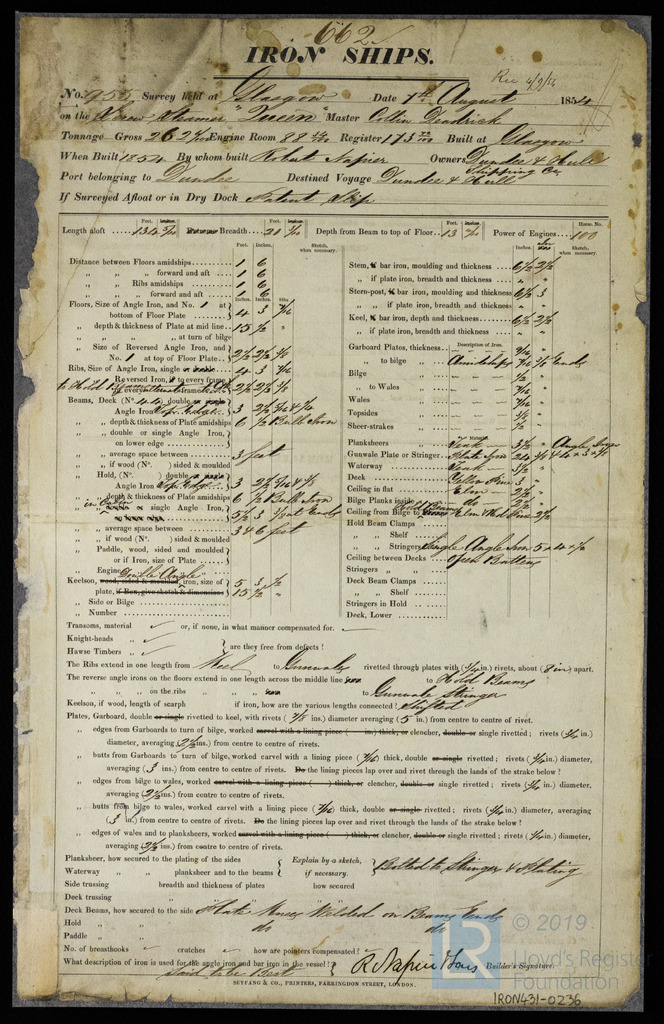 662
IRON SHIPS.
Rec 4/9/54
No. 1955 Survey held at Glasgow Date 7th August 1854
on the Screw Steamer "Queen" Master Collin Deadrick
Tonnage Gross 262 Engine Room 88 Register 173 Built at Glasgow
When Built 1854 By whom built Robert Napier Owners Dundee & Hull Shipping Co
Port belonging to Dundee Destined Voyage Dundee & Hull
If Surveyed Afloat or in Dry Dock Patent Slip
Length aloft Feet. Breadth Feet. Depth from Beam to top of Floor Feet. 13 Power of Engines Horse No. 100
Feet. Inches. Sketch, when necessary.
Distance between Floors amidships 1 6
„ „ forward and aft 1 6
„ Ribs amidships 1 6
„ „ forward and aft 1 6
Floors, Size of Angle Iron, and No. 1 at bottom of Floor Plate 4 3
„ depth & thickness of Plate at mid line 15½
„ „ at turn of bilge
„ Size of Reversed Angle Iron, and No. 1 at top of Floor Plate 2½ 2½
Ribs, Size of Angle Iron, single or double 4 3
Reversed Iron, to every frame
Beams, Deck (No. 44) double or single Angle Iron
„ depth & thickness of Plate amidships 6 Bulb Iron
„ double or single Angle Iron, on lower edge
„ average space between 3 feet
„ if wood (No. ) sided & moulded
„ Hold, (No. ) double or single Angle Iron
„ depth & thickness of Plate amidships 6 Bulb Iron
in Cabin
single Angle Iron,
„ average space between 3 & 6 feet
„ if wood (No. ) sided & moulded
„ Paddle, wood, sided and moulded or if Iron, size of Plate
„ Engine
Double Angle
Keelson, wood, sided & moulded, iron, size of plate, if Box, give sketch & dimensions 5 3 15½
„ Side or Bilge
„ Number
Inches. Sketch, when necessary.
Stem, if bar iron, moulding and thickness 6½ 2½
„ if plate iron, breadth and thickness
Stern-post, if bar iron, moulding and thickness 6½ 3
„ „ if plate iron, breadth and thickness
Keel, if bar iron, depth and thickness 6½ 2½
„ if plate iron, breadth and thickness
Garboard Plates, thickness Description of Iron.
„ to bilge Amidships Ends
Bilge
„ to Wales
Wales
Topsides
Sheer-strakes
Planksheers Teak Angle Iron
Gunwale Plate or Stringer Plate Iron
Waterway Teak
Deck Yellow Pine 3
Ceiling in flat Elm 2½
Bilge Planks inside do 2½
Ceiling from Bilge to Hold Beams Elm & Red Pine 2½
Hold Beam Clamps
„ „ Shelf
„ „ Stringers Single Angle Iron
Ceiling between Decks Open Battens
Stringers „ „
Deck Beam Clamps
„ „ Shelf
Stringers in Hold
Deck, Lower
Transoms, material ✓ or, if none, in what manner compensated for. ✓
Knight-heads ✓
Hawse Timbers ✓ } are they free from defects?
The Ribs extend in one length from Keel to Gunwale rivetted through plates with (3/4 in.) rivets, about (8 in) apart.
The reverse angle irons on the floors extend in one length across the middle line to Hold Beams
„ „ on the ribs to Gunwale Stringer
Keelson, if wood, length of scarph if iron, how are the various lengths connected? Shifted
Plates, Garboard, double or single rivetted to keel, with rivets (7/8 ins.) diameter averaging (5 in.) from centre to centre of rivet.
„ edges from Garboards to turn of bilge, worked carvel with a lining piece ( in.) thick, or clencher, double or single rivetted; rivets (3/4 in.) diameter, averaging (2½ ins.) from centre to centre of rivets.
„ butts from Garboards to turn of bilge, worked carvel with a lining piece (7/16) thick, double or single rivetted; rivets (3/4 in.) diameter, averaging (3 ins.) from centre to centre of rivets. Do the lining pieces lap over and rivet through the lands of the strake below?
„ edges from bilge to wales, worked carvel with a lining piece ( ) thick, or clencher, double or single rivetted; rivets (3/4 in.) diameter, averaging (2½ ins.) from centre to centre of rivets.
„ butts from bilge to wales, worked carvel with a lining piece (7/16) thick, double or single rivetted; rivets (3/4 in.) diameter, averaging (3 in.) from centre to centre of rivets. Do the lining pieces lap over and rivet through the lands of the strake below?
„ edges of wales and planksheers, worked carvel with a lining piece ( ) thick, or clencher, double or single rivetted; rivets (3/4 in.) diameter, averaging (2½ ins.) from centre to centre of rivets.
Planksheer, how secured to the plating of the sides } Explain by a sketch, if necessary. { Bolted to Stringer & Plating
Waterway „ planksheer and to the beams
Side trussing breadth and thickness of plates how secured
Deck trussing
Deck Beams, how secured to the side Plate Knees Welded on Beam Ends
Hold „ do do
Paddle „
No. of breasthooks ✓ crutches ✓ how are pointers compensated? ✓
What description of iron is used for the angle iron and bar iron in the vessel? Said to be Best
R Napier & Sons Builder's Signature.
SEYFANG & CO., PRINTERS, FARRINGDON STREET, LONDON.
© 2019
LR Lloyd's Register Foundation
IRON431-0236